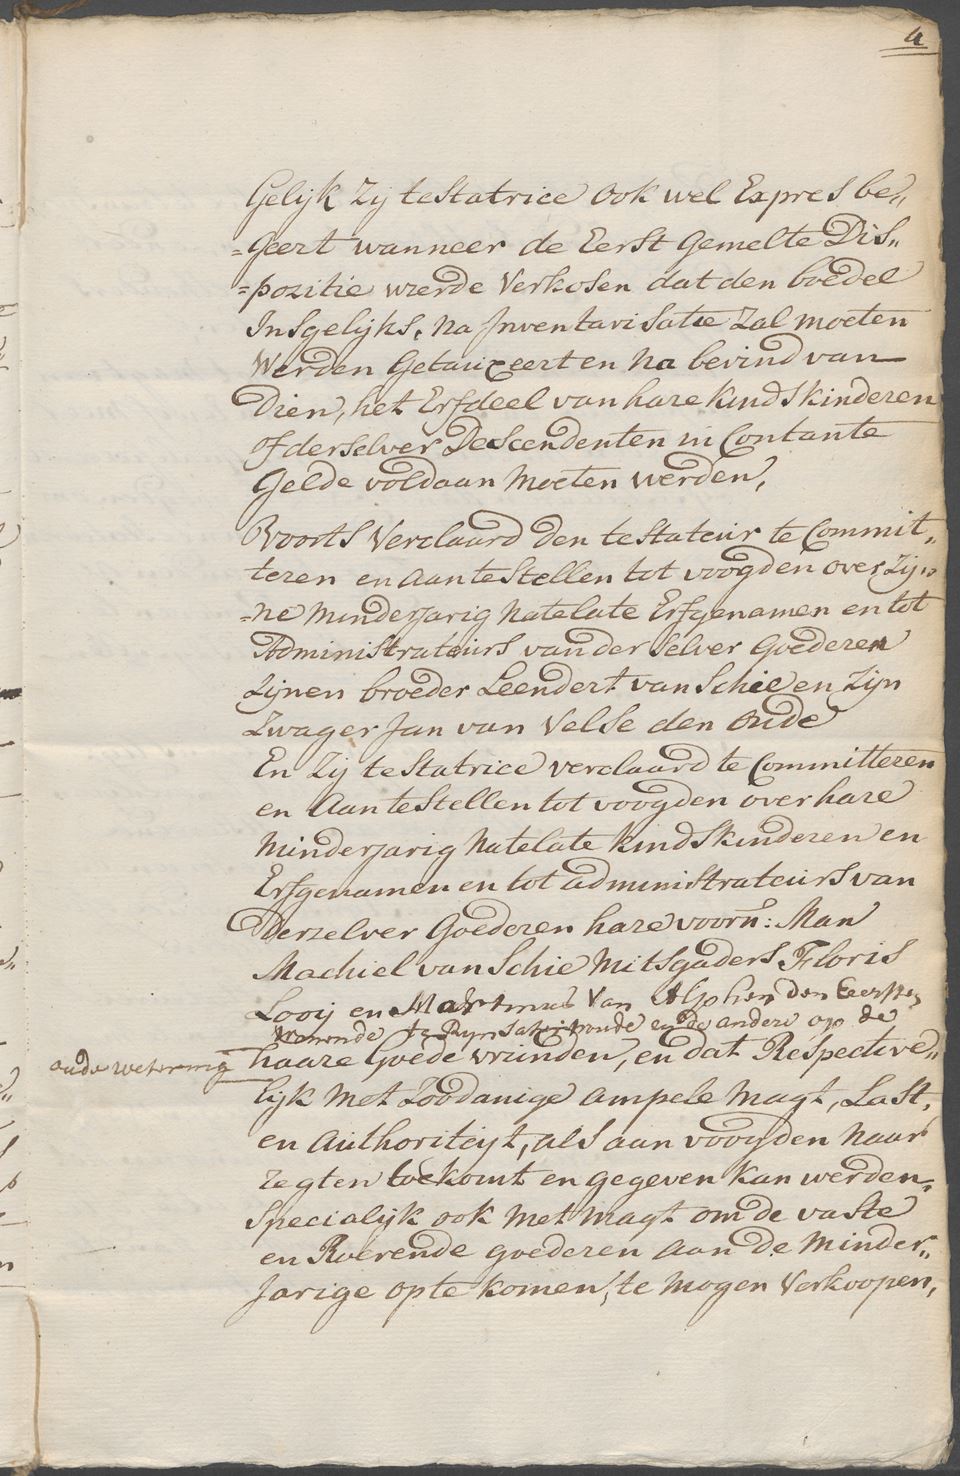 4
Gelijk Zij testatrice ook wel Expres be„
=geert wanneer de Eerst gemelte Dis„
=pozitie wierde Verkosen dat den boedel
Insgelijks, na Inventarisatie Zal moeten
Werden Getauxeert en na bevind van
Dien, het Erfdeel van hare kindskinderen
of derselver Descendenten in Contante
Gelde voldaan moeten werden,
Voorts Verclaard Den testateur te Commit„
teren en aan te Stellen tot voogden over Zij„
=ne minderjarig natelate Erfgenamen en tot
Administrateurs van der selver Goederen
Zijnen broeder Leendert van Schie en Zijn
Zwager Jan van Velse den oude
En Zij testatrice verclaard te Committeren
en Aan te Stellen tot voogden over hare
Minderjarig Natelate kindskinderen en
Erfgenamen en tot administrateurs van
Derzelver Goederen hare voorn: Man
Machiel van Schie Mitsgaders Floris
Looij en Martinus Van Alphen den Eerste
woonende te Rynsaterwoude en de andere op de
oude wetering
haare Goede vrinden, en dat Respective„
lijk met Zoodanige ampele magt, Last,
en Authoriteijt, als aan voogden naar
regten toekomt en gegeven kan werden„
Specialijk ook met magt om de vaste
en Roerende goederen aan de Minder„
Jarige op te komen, te mogen Verkoopen,